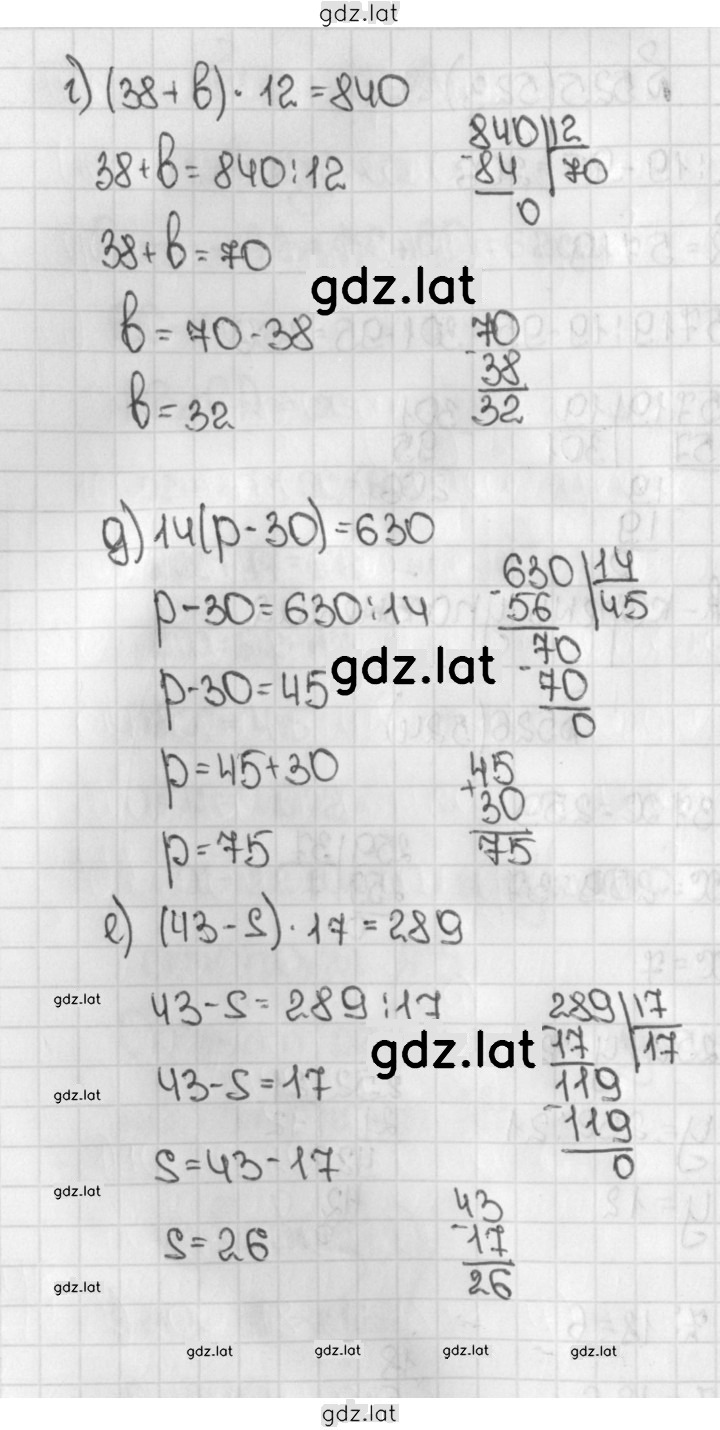 gdz.lat
г) (38 + b) · 12 = 840
38 + b = 840 : 12
840 | 12
- 84 | 70
0
38 + b = 70
gdz.lat
b = 70 - 38
70
- 38
32
b = 32
д) 14(p - 30) = 630
p - 30 = 630 : 14
630 | 14
- 56 | 45
70
- 70
0
p - 30 = 45
gdz.lat
p = 45 + 30
45
+ 30
75
p = 75
е) (43 - s) · 17 = 289
gdz.lat
43 - s = 289 : 17
289 | 17
- 17 | 17
119
- 119
0
gdz.lat
43 - s = 17
gdz.lat
s = 43 - 17
gdz.lat
s = 26
43
- 17
26
gdz.lat
gdz.lat gdz.lat gdz.lat gdz.lat
gdz.lat